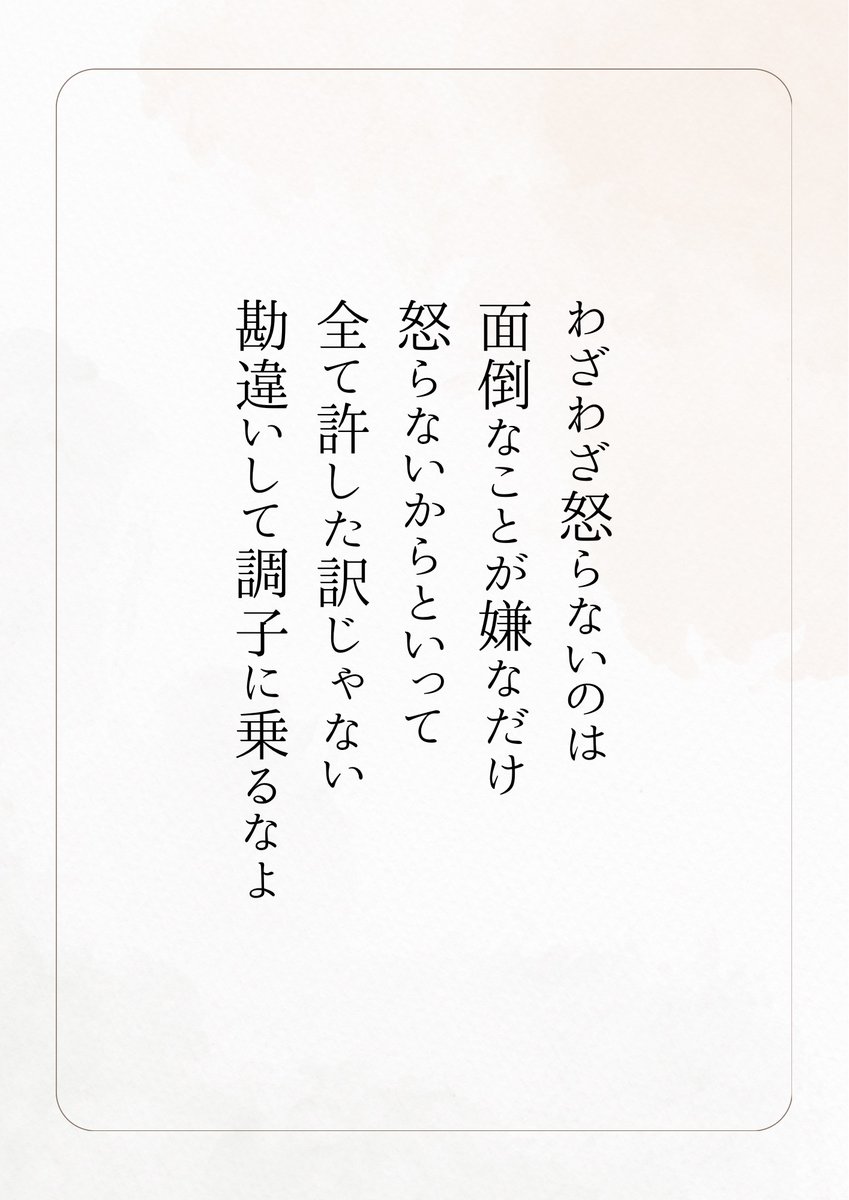 わざわざ怒らないのは
面倒なことが嫌なだけ
怒らないからといって
全て許した訳じゃない
勘違いして調子に乗るなよ